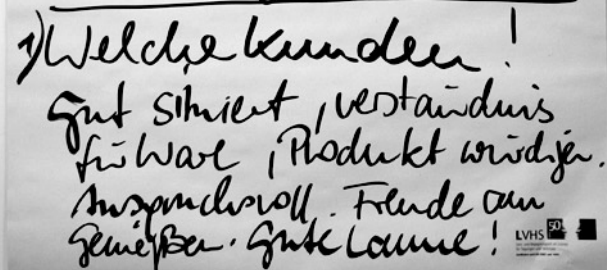 1) Welche Kunden!
Gut situiert, verständnis
für Ware, Produkt würdigen.
Anspruchsvoll. Freude am
Genießen. Gute Laune!
LVHS 50